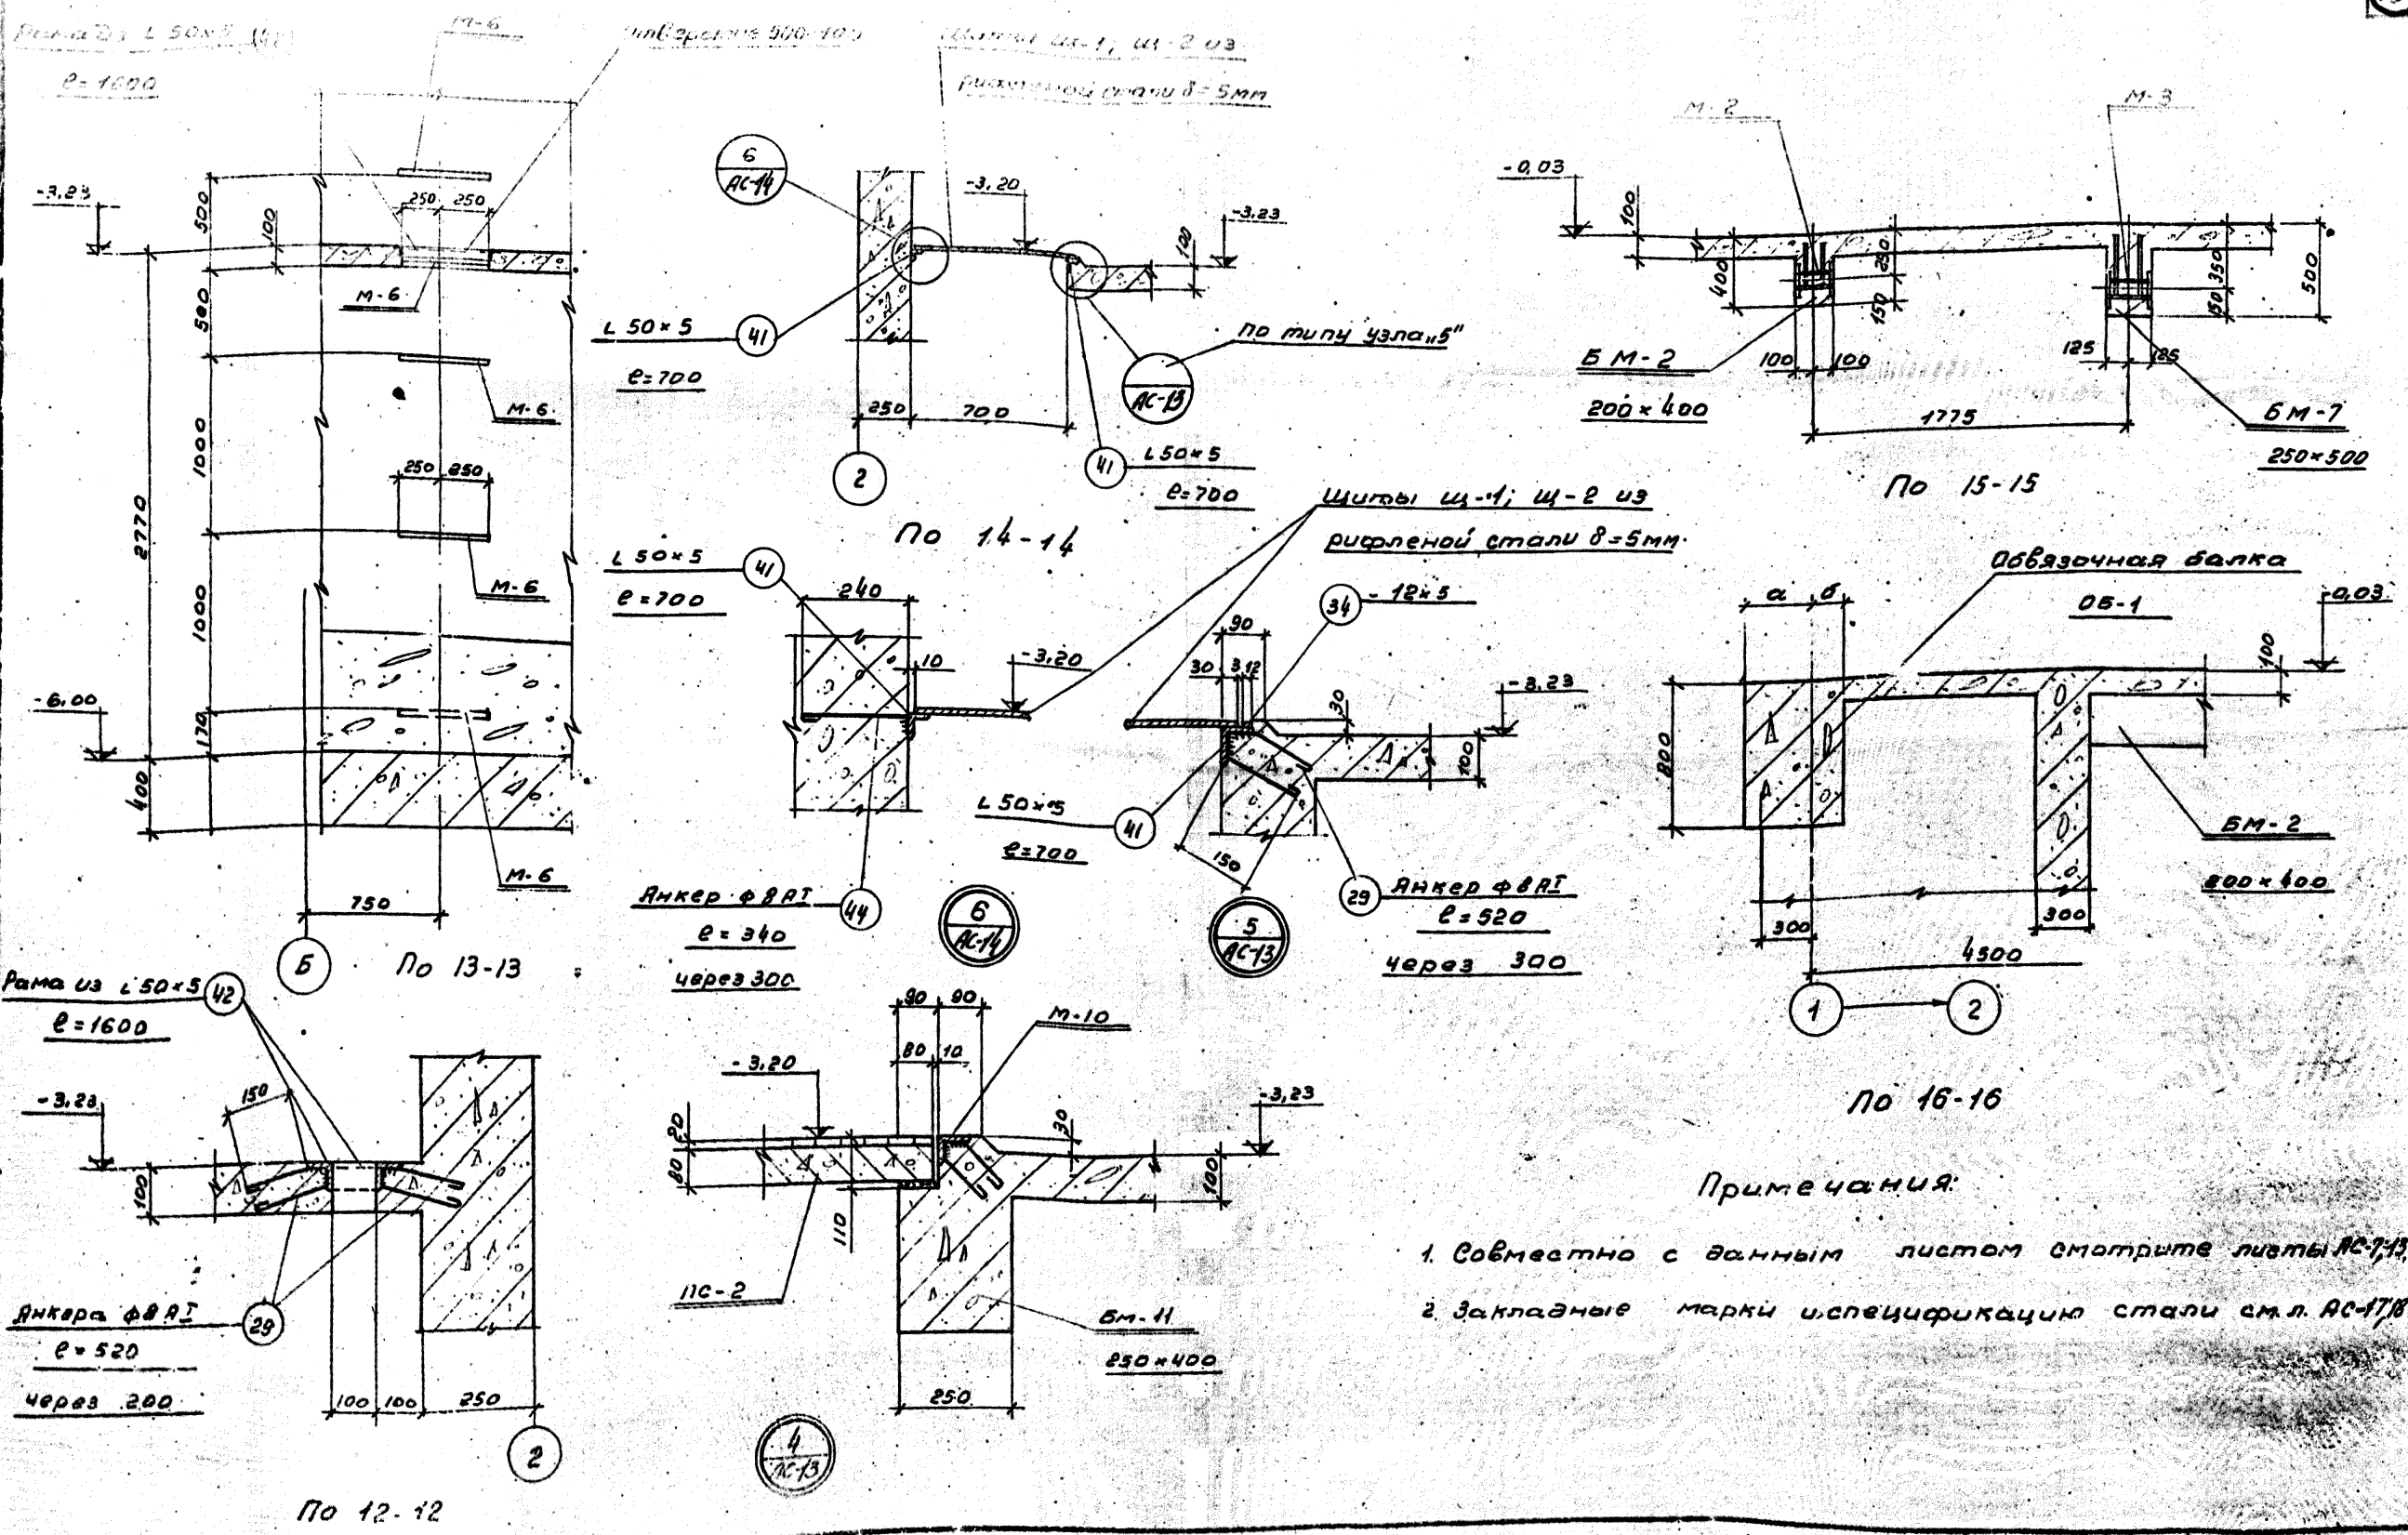 Рама из L 50×5
ℓ=1600
М-6
отверстие 500×100
Щиты Щ-1; Щ-2 из
рифленой стали δ=5мм
-3,23
500
100
250 250
М-6
500
М-6
1000
250 250
2770
М-6
1000
-6,00
170
400
М-6
750
Б
По 13-13
6
АС-14
-3,20
-3,23
100
L 50×5
41
ℓ=700
по типу узла „5"
АС-13
250
700
41
L 50×5
ℓ=700
2
По 14-14
М-2
М-3
-0,03
100
400
250
150
350
150
500
БМ-2
200×400
100 100
125 125
1775
БМ-7
250×500
По 15-15
L 50×5
41
ℓ=700
240
10
-3,20
Щиты Щ-1; Щ-2 из
рифленой стали δ=5мм.
Анкер ф8АI
44
ℓ=340
через 300
6
АС-14
34
-12×5
90
30 3 12
30
-3,23
100
L 50×5
41
ℓ=700
150
29
Анкер ф8АI
ℓ=520
через 300
5
АС-13
Обвязочная балка
ОБ-1
а б
-0,03
100
800
БМ-2
200×400
300
300
4500
1 2
По 16-16
Рама из L50×5
42
ℓ=1600
-3,23
150
100
Анкера ф8АI
29
ℓ=520
через 200
100 100 250
2
По 12-12
90 90
М-10
80 10
-3,20
-3,23
20
80
30
100
110
ПС-2
БМ-11
250×400
250
4
АС-13
Примечания:
1. Совместно с данным листом смотрите листы АС-7,13
2. Закладные марки и спецификацию стали см.л. АС-17,18